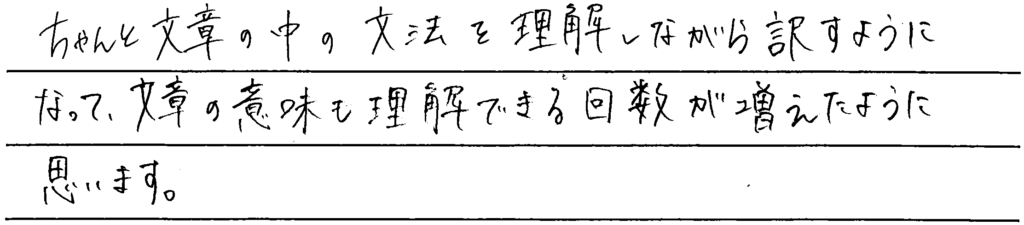 ちゃんと文章の中の文法を理解しながら訳すように
なって、文章の意味も理解できる回数が増えたように
思います。